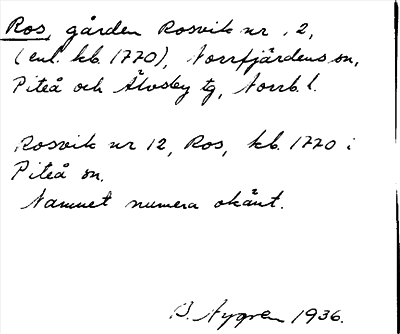 Ros, gården Rosvik nr 12,
(enl. kb. 1770), Norrfjärdens sn,
Piteå och Älvsby tg, Norrb. l.
Rosvik nr 12, Ros, kb. 1770 i
Piteå sn.
Namnet numera okänt.
B. Nygren 1936.